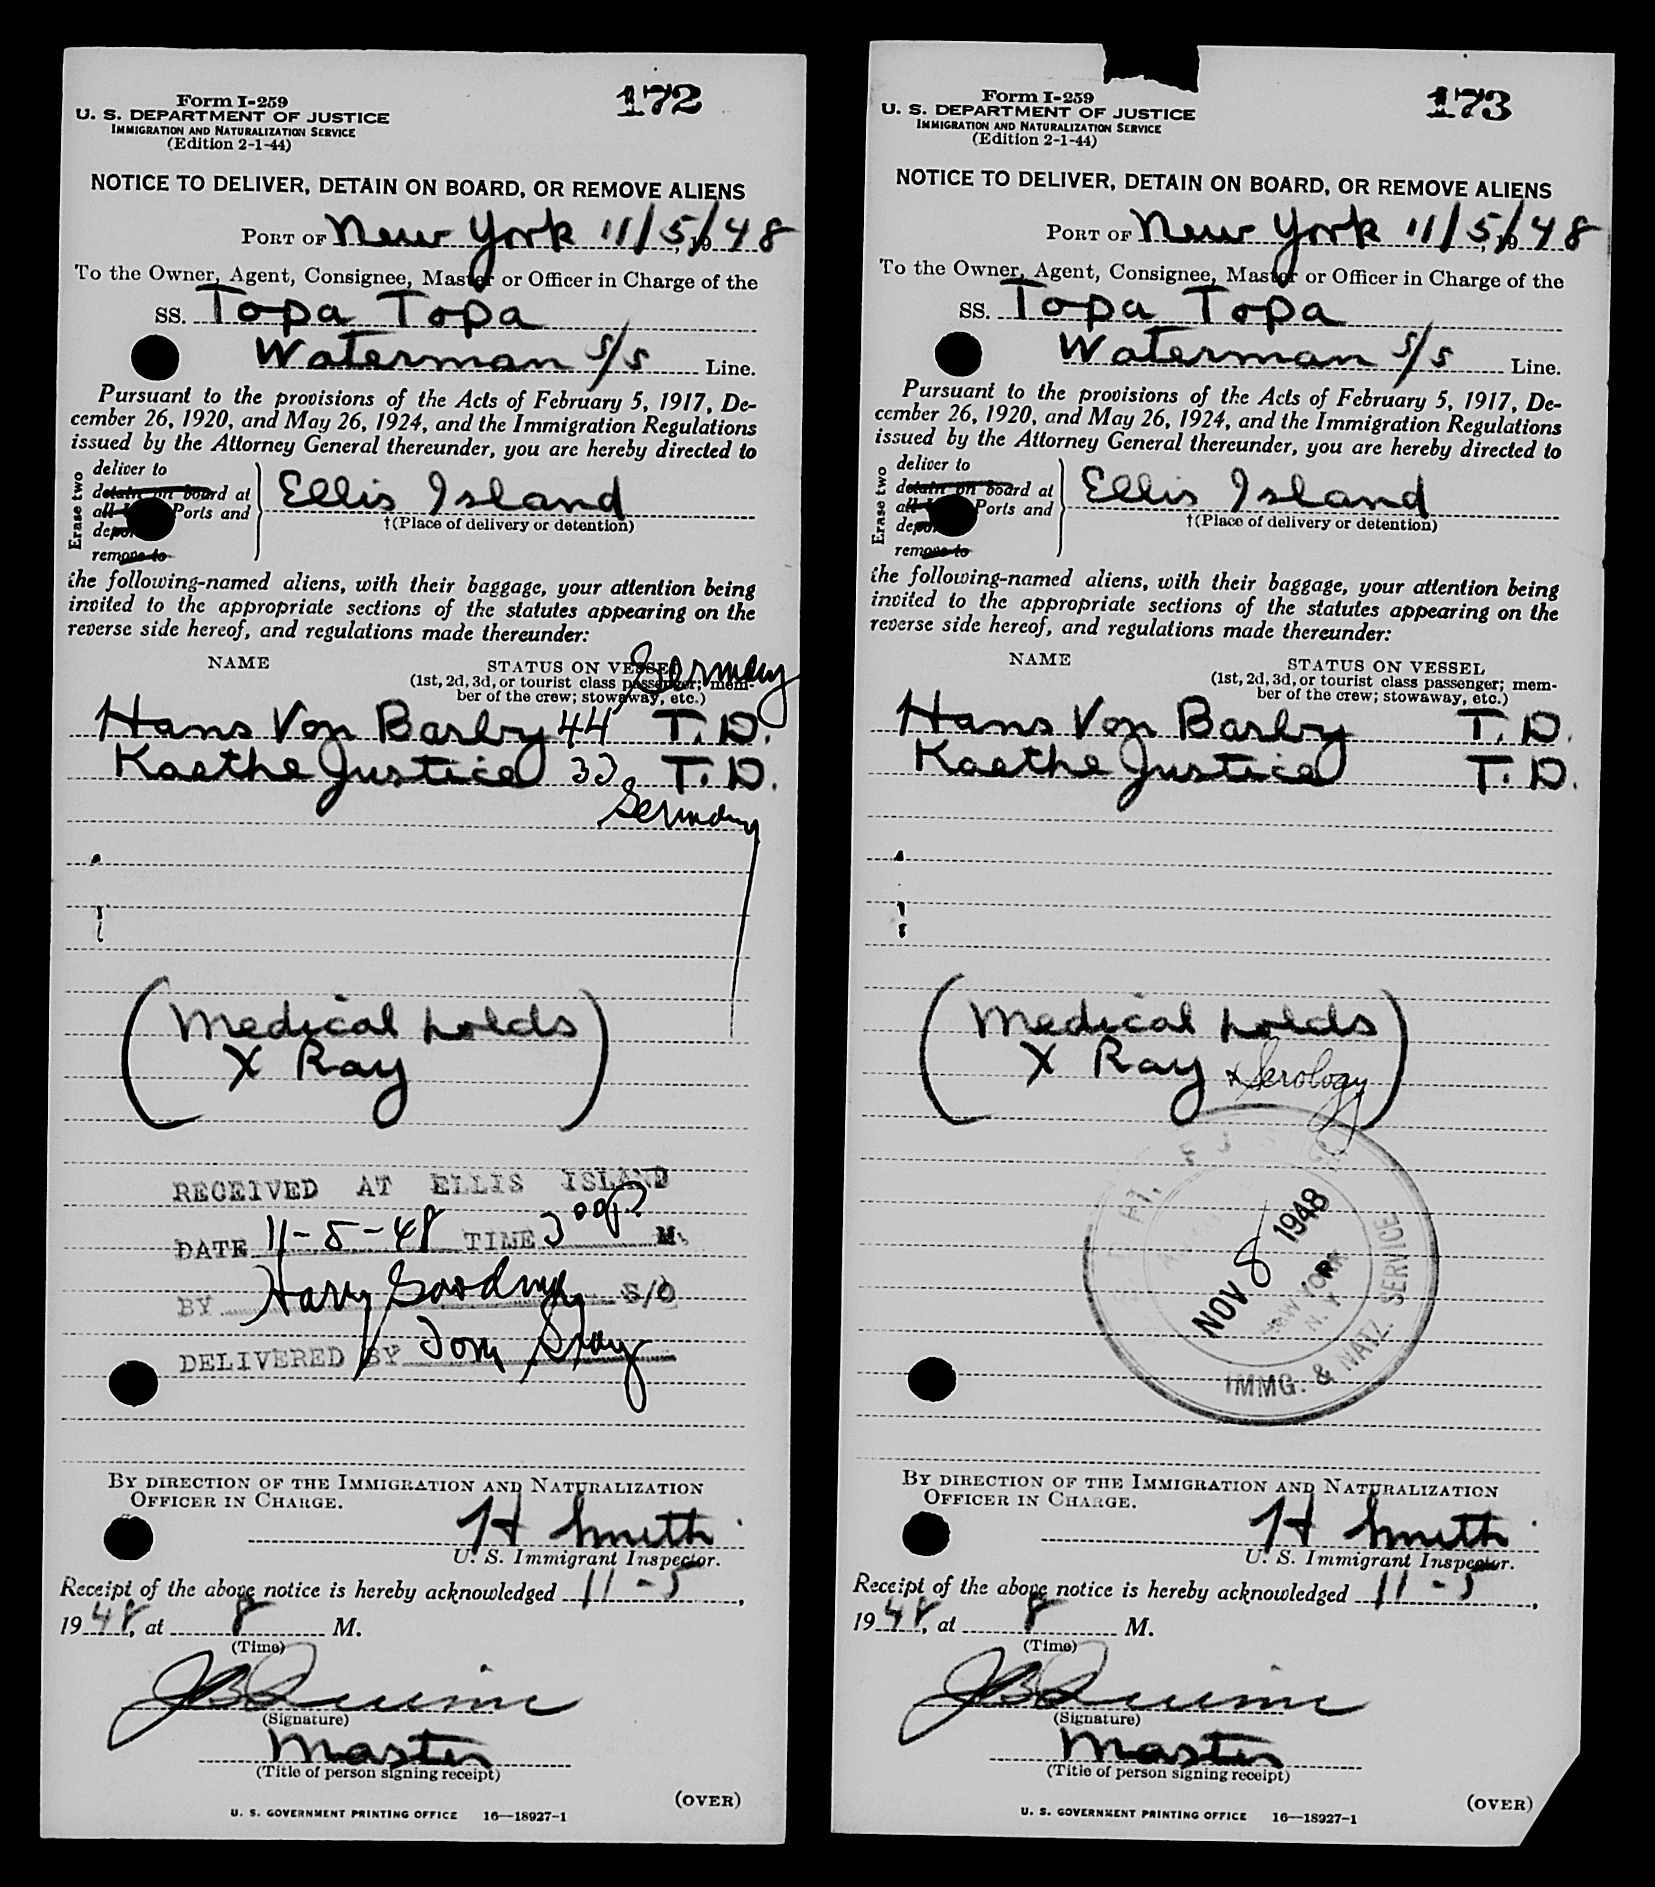 Form I-259
172
U. S. DEPARTMENT OF JUSTICE
IMMIGRATION AND NATURALIZATION SERVICE
(Edition 2-1-44)
NOTICE TO DELIVER, DETAIN ON BOARD, OR REMOVE ALIENS
PORT OF New York 11/5/, 1948
To the Owner, Agent, Consignee, Master or Officer in Charge of the
SS. Topa Topa
Waterman S/S Line.
Pursuant to the provisions of the Acts of February 5, 1917, De-
cember 26, 1920, and May 26, 1924, and the Immigration Regulations
issued by the Attorney General thereunder, you are hereby directed to
Erase two
deliver to
detain on board at
all Ports and
remove to
Ellis Island
†(Place of delivery or detention)
the following-named aliens, with their baggage, your attention being
invited to the appropriate sections of the statutes appearing on the
reverse side hereof, and regulations made thereunder:
NAME
STATUS ON VESSEL
(1st, 2d, 3d, or tourist class passenger; mem-
ber of the crew; stowaway, etc.)
Germany
Hans Von Barby 44 T. D.
Kaethe Justice 33 T. D.
Germany
(Medical holds
X Ray)
RECEIVED AT ELLIS ISLAND
DATE 11-5-48 TIME 3 00 P M.
BY Harry S/O
DELIVERED BY Tom Gray
BY DIRECTION OF THE IMMIGRATION AND NATURALIZATION
OFFICER IN CHARGE.
H Smith
U. S. Immigrant Inspector.
Receipt of the above notice is hereby acknowledged 11-5,
1948, at 8 M.
(Time)
(Signature)
Master
(Title of person signing receipt)
(OVER)
U. S. GOVERNMENT PRINTING OFFICE 16—18927-1
Form I-259
173
U. S. DEPARTMENT OF JUSTICE
IMMIGRATION AND NATURALIZATION SERVICE
(Edition 2-1-44)
NOTICE TO DELIVER, DETAIN ON BOARD, OR REMOVE ALIENS
PORT OF New York 11/5/, 1948
To the Owner, Agent, Consignee, Master or Officer in Charge of the
SS. Topa Topa
Waterman S/S Line.
Pursuant to the provisions of the Acts of February 5, 1917, De-
cember 26, 1920, and May 26, 1924, and the Immigration Regulations
issued by the Attorney General thereunder, you are hereby directed to
Erase two
deliver to
detain on board at
all Ports and
remove to
Ellis Island
†(Place of delivery or detention)
the following-named aliens, with their baggage, your attention being
invited to the appropriate sections of the statutes appearing on the
reverse side hereof, and regulations made thereunder:
NAME
STATUS ON VESSEL
(1st, 2d, 3d, or tourist class passenger; mem-
ber of the crew; stowaway, etc.)
Hans Von Barby T. D.
Kaethe Justice T. D.
(Medical holds
X Ray + Serology)
NOV 8 1948
NEW YORK
N. Y.
IMMG. & NATZ. SERVICE
BY DIRECTION OF THE IMMIGRATION AND NATURALIZATION
OFFICER IN CHARGE.
H Smith
U. S. Immigrant Inspector.
Receipt of the above notice is hereby acknowledged 11-5,
1948, at 8 M.
(Time)
(Signature)
Master
(Title of person signing receipt)
(OVER)
U. S. GOVERNMENT PRINTING OFFICE 16—18927-1